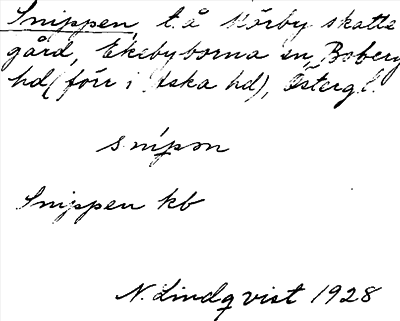 Snippen, t.å Körby skatte
gård, Ekebyborna sn, Boberg
hd (förr i Aska hd), Östergl.
snipən
Snippen kb
N. Lindqvist 1928